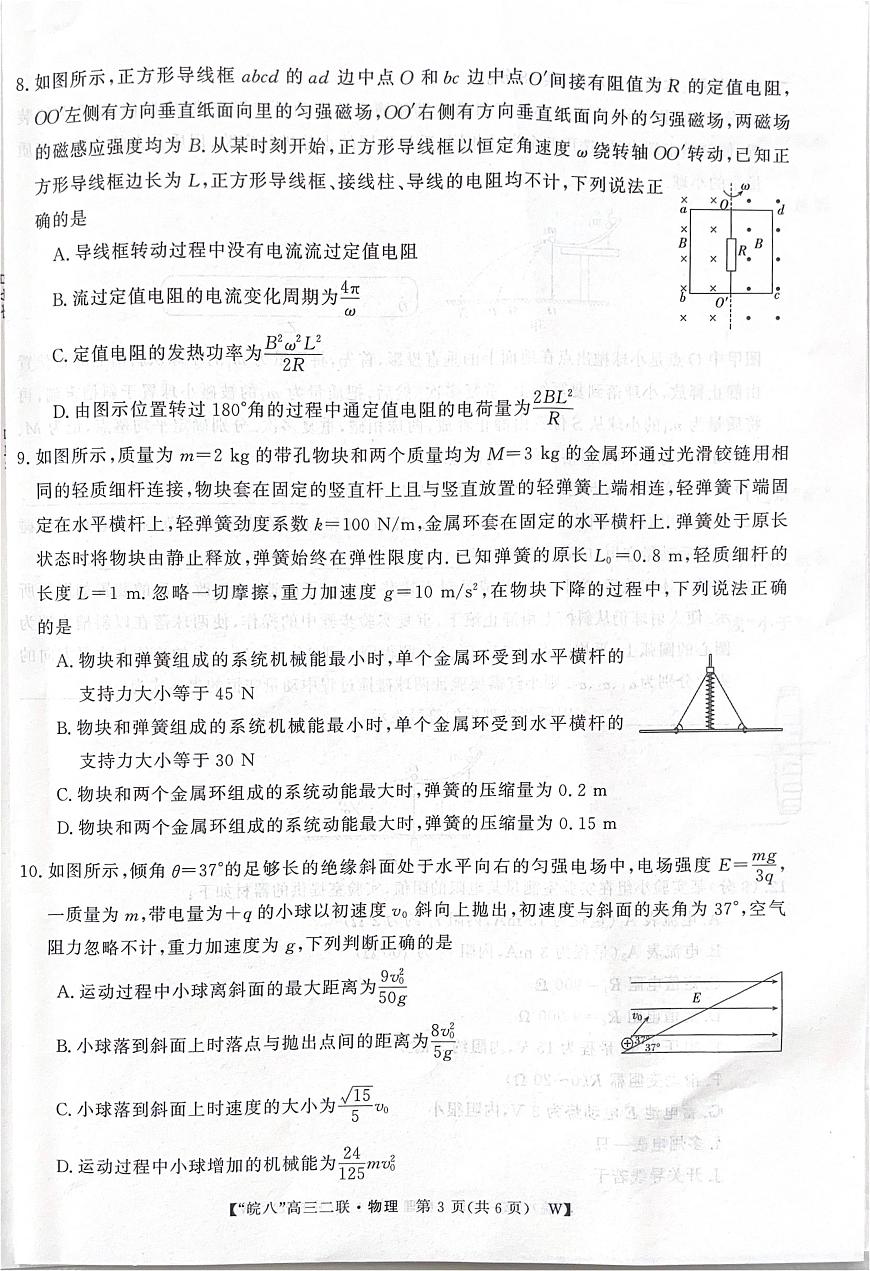 8. 如图所示,正方形导线框 abcd 的 ad 边中点 O 和 bc 边中点 O′间接有阻值为 R 的定值电阻,
OO′左侧有方向垂直纸面向里的匀强磁场,OO′右侧有方向垂直纸面向外的匀强磁场,两磁场
的磁感应强度均为 B. 从某时刻开始,正方形导线框以恒定角速度 ω 绕转轴 OO′转动,已知正
方形导线框边长为 L,正方形导线框、接线柱、导线的电阻均不计,下列说法正
确的是
ω
a O d
B R B
b O′ c
A. 导线框转动过程中没有电流流过定值电阻
B. 流过定值电阻的电流变化周期为4π/ω
C. 定值电阻的发热功率为B²ω²L²/2R
D. 由图示位置转过 180°角的过程中通定值电阻的电荷量为2BL²/R
9. 如图所示,质量为 m=2 kg 的带孔物块和两个质量均为 M=3 kg 的金属环通过光滑铰链用相
同的轻质细杆连接,物块套在固定的竖直杆上且与竖直放置的轻弹簧上端相连,轻弹簧下端固
定在水平横杆上,轻弹簧劲度系数 k=100 N/m,金属环套在固定的水平横杆上. 弹簧处于原长
状态时将物块由静止释放,弹簧始终在弹性限度内. 已知弹簧的原长 L₀=0.8 m,轻质细杆的
长度 L=1 m. 忽略一切摩擦,重力加速度 g=10 m/s²,在物块下降的过程中,下列说法正确
的是
A. 物块和弹簧组成的系统机械能最小时,单个金属环受到水平横杆的
支持力大小等于 45 N
B. 物块和弹簧组成的系统机械能最小时,单个金属环受到水平横杆的
支持力大小等于 30 N
C. 物块和两个金属环组成的系统动能最大时,弹簧的压缩量为 0.2 m
D. 物块和两个金属环组成的系统动能最大时,弹簧的压缩量为 0.15 m
10. 如图所示,倾角 θ=37°的足够长的绝缘斜面处于水平向右的匀强电场中,电场强度 E=mg/3q,
一质量为 m,带电量为+q 的小球以初速度 v₀ 斜向上抛出,初速度与斜面的夹角为 37°,空气
阻力忽略不计,重力加速度为 g,下列判断正确的是
A. 运动过程中小球离斜面的最大距离为9v₀²/50g
B. 小球落到斜面上时落点与抛出点间的距离为8v₀²/5g
C. 小球落到斜面上时速度的大小为√15/5 v₀
D. 运动过程中小球增加的机械能为24/125 mv₀²
E
v₀
37°
37°
【“皖八”高三二联·物理 第 3 页(共 6 页) W】